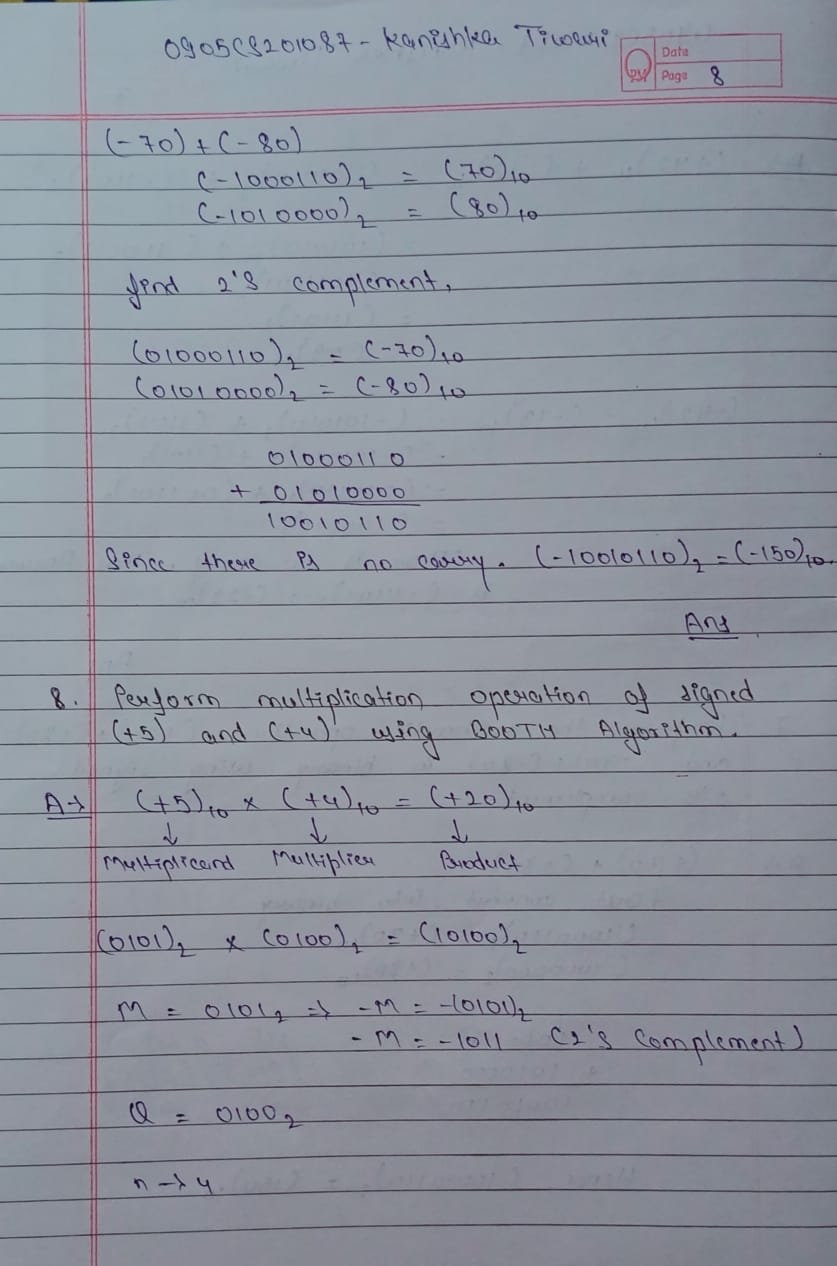 0905CS201087 - Kanishka Tiwari
Date
PM Page 8
(-70) + (-80)
(-1000110)₂ = (70)₁₀
(-1010000)₂ = (80)₁₀
find 2's complement,
(01000110)₂ = (-70)₁₀
(01010000)₂ = (-80)₁₀
01000110
+ 01010000
10010110
Since there is no carry. (-10010110)₂ = (-150)₁₀.
Ans.
8. Perform multiplication operation of signed
(+5) and (+4) using BOOTH Algorithm.
A→ (+5)₁₀ × (+4)₁₀ = (+20)₁₀
↓ ↓ ↓
Multiplicand Multiplier Product
(0101)₂ × (0100)₂ = (10100)₂
M = 0101₂ ⇒ -M = -(0101)₂
-M = -1011 (2's Complement)
Q = 0100₂
n → 4